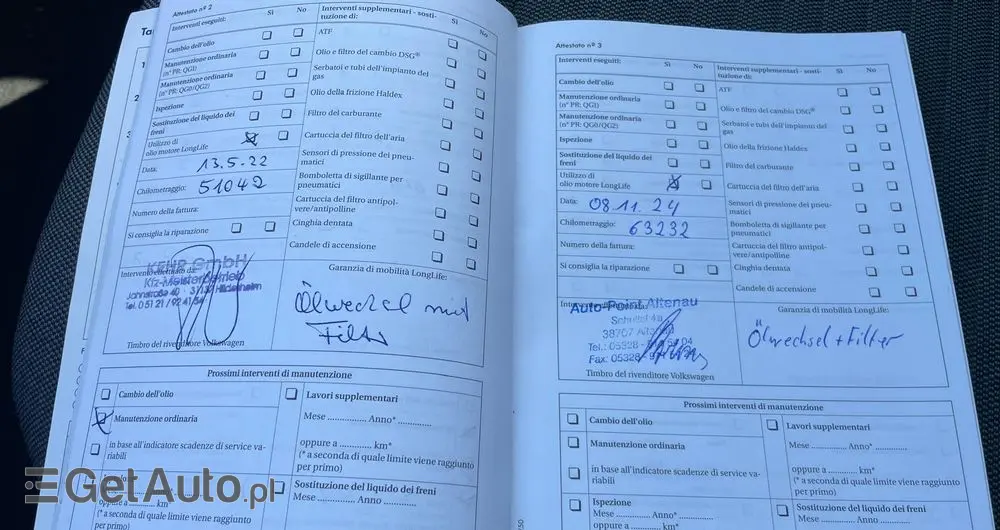 Ta
Attestato nº 2
Interventi eseguiti:
Sì
No
Interventi supplementari - sosti-
tuzione di:
Sì
No
Cambio dell'olio
ATF
Manutenzione ordinaria
(nº PR: QG1)
Olio e filtro del cambio DSG®
Manutenzione ordinaria
(nº PR: QG0/QG2)
Serbatoi e tubi dell'impianto del
gas
Ispezione
Olio della frizione Haldex
Sostituzione del liquido dei
freni
Filtro del carburante
Utilizzo di
olio motore LongLife
Cartuccia del filtro dell'aria
Data:
13.5.22
Sensori di pressione dei pneu-
matici
Chilometraggio:
51042
Bomboletta di sigillante per
pneumatici
Numero della fattura:
Cartuccia del filtro antipol-
vere/antipolline
Si consiglia la riparazione
Cinghia dentata
Candele di accensione
Intervento effettuato da:
KEHR GmbH
Kfz-Meisterbetrieb
Jahnstraße 40 31137 Hildesheim
Tel. 0 51 21 / 92 41 54
Timbro del rivenditore Volkswagen
Garanzia di mobilità LongLife:
Ölwechsel mit
Filter
Prossimi interventi di manutenzione
Cambio dell'olio
Manutenzione ordinaria
in base all'indicatore scadenze di service va-
riabili
oppure a km*
(* a seconda di quale limite viene raggiunto
per primo)
Lavori supplementari
Mese ............. Anno* .............
oppure a ............ km*
(* a seconda di quale limite viene raggiunto
per primo)
Sostituzione del liquido dei freni
Mese ............. Anno .............
Attestato nº 3
Interventi eseguiti:
Sì
No
Interventi supplementari - sosti-
tuzione di:
Sì
No
Cambio dell'olio
ATF
Manutenzione ordinaria
(nº PR: QG1)
Olio e filtro del cambio DSG®
Manutenzione ordinaria
(nº PR: QG0/QG2)
Serbatoi e tubi dell'impianto del
gas
Ispezione
Olio della frizione Haldex
Sostituzione del liquido dei
freni
Filtro del carburante
Utilizzo di
olio motore LongLife
Cartuccia del filtro dell'aria
Data:
08.11.24
Sensori di pressione dei pneu-
matici
Chilometraggio:
63232
Bomboletta di sigillante per
pneumatici
Numero della fattura:
Cartuccia del filtro antipol-
vere/antipolline
Si consiglia la riparazione
Cinghia dentata
Candele di accensione
Auto-Point Altenau
38707
Tel.: 05328 - 04
Fax: 05328
Timbro del rivenditore Volkswagen
Garanzia di mobilità LongLife:
Ölwechsel + Filter
Prossimi interventi di manutenzione
Cambio dell'olio
Manutenzione ordinaria
in base all'indicatore scadenze di service va-
riabili
Ispezione
Mese ............. Anno* .............
oppure a ............ km*
Lavori supplementari
Mese ............. Anno* .............
oppure a ............ km*
(* a seconda di quale limite viene raggiunto
per primo)
Sostituzione del liquido dei freni
Mese ............. Anno .............
GetAuto.pl